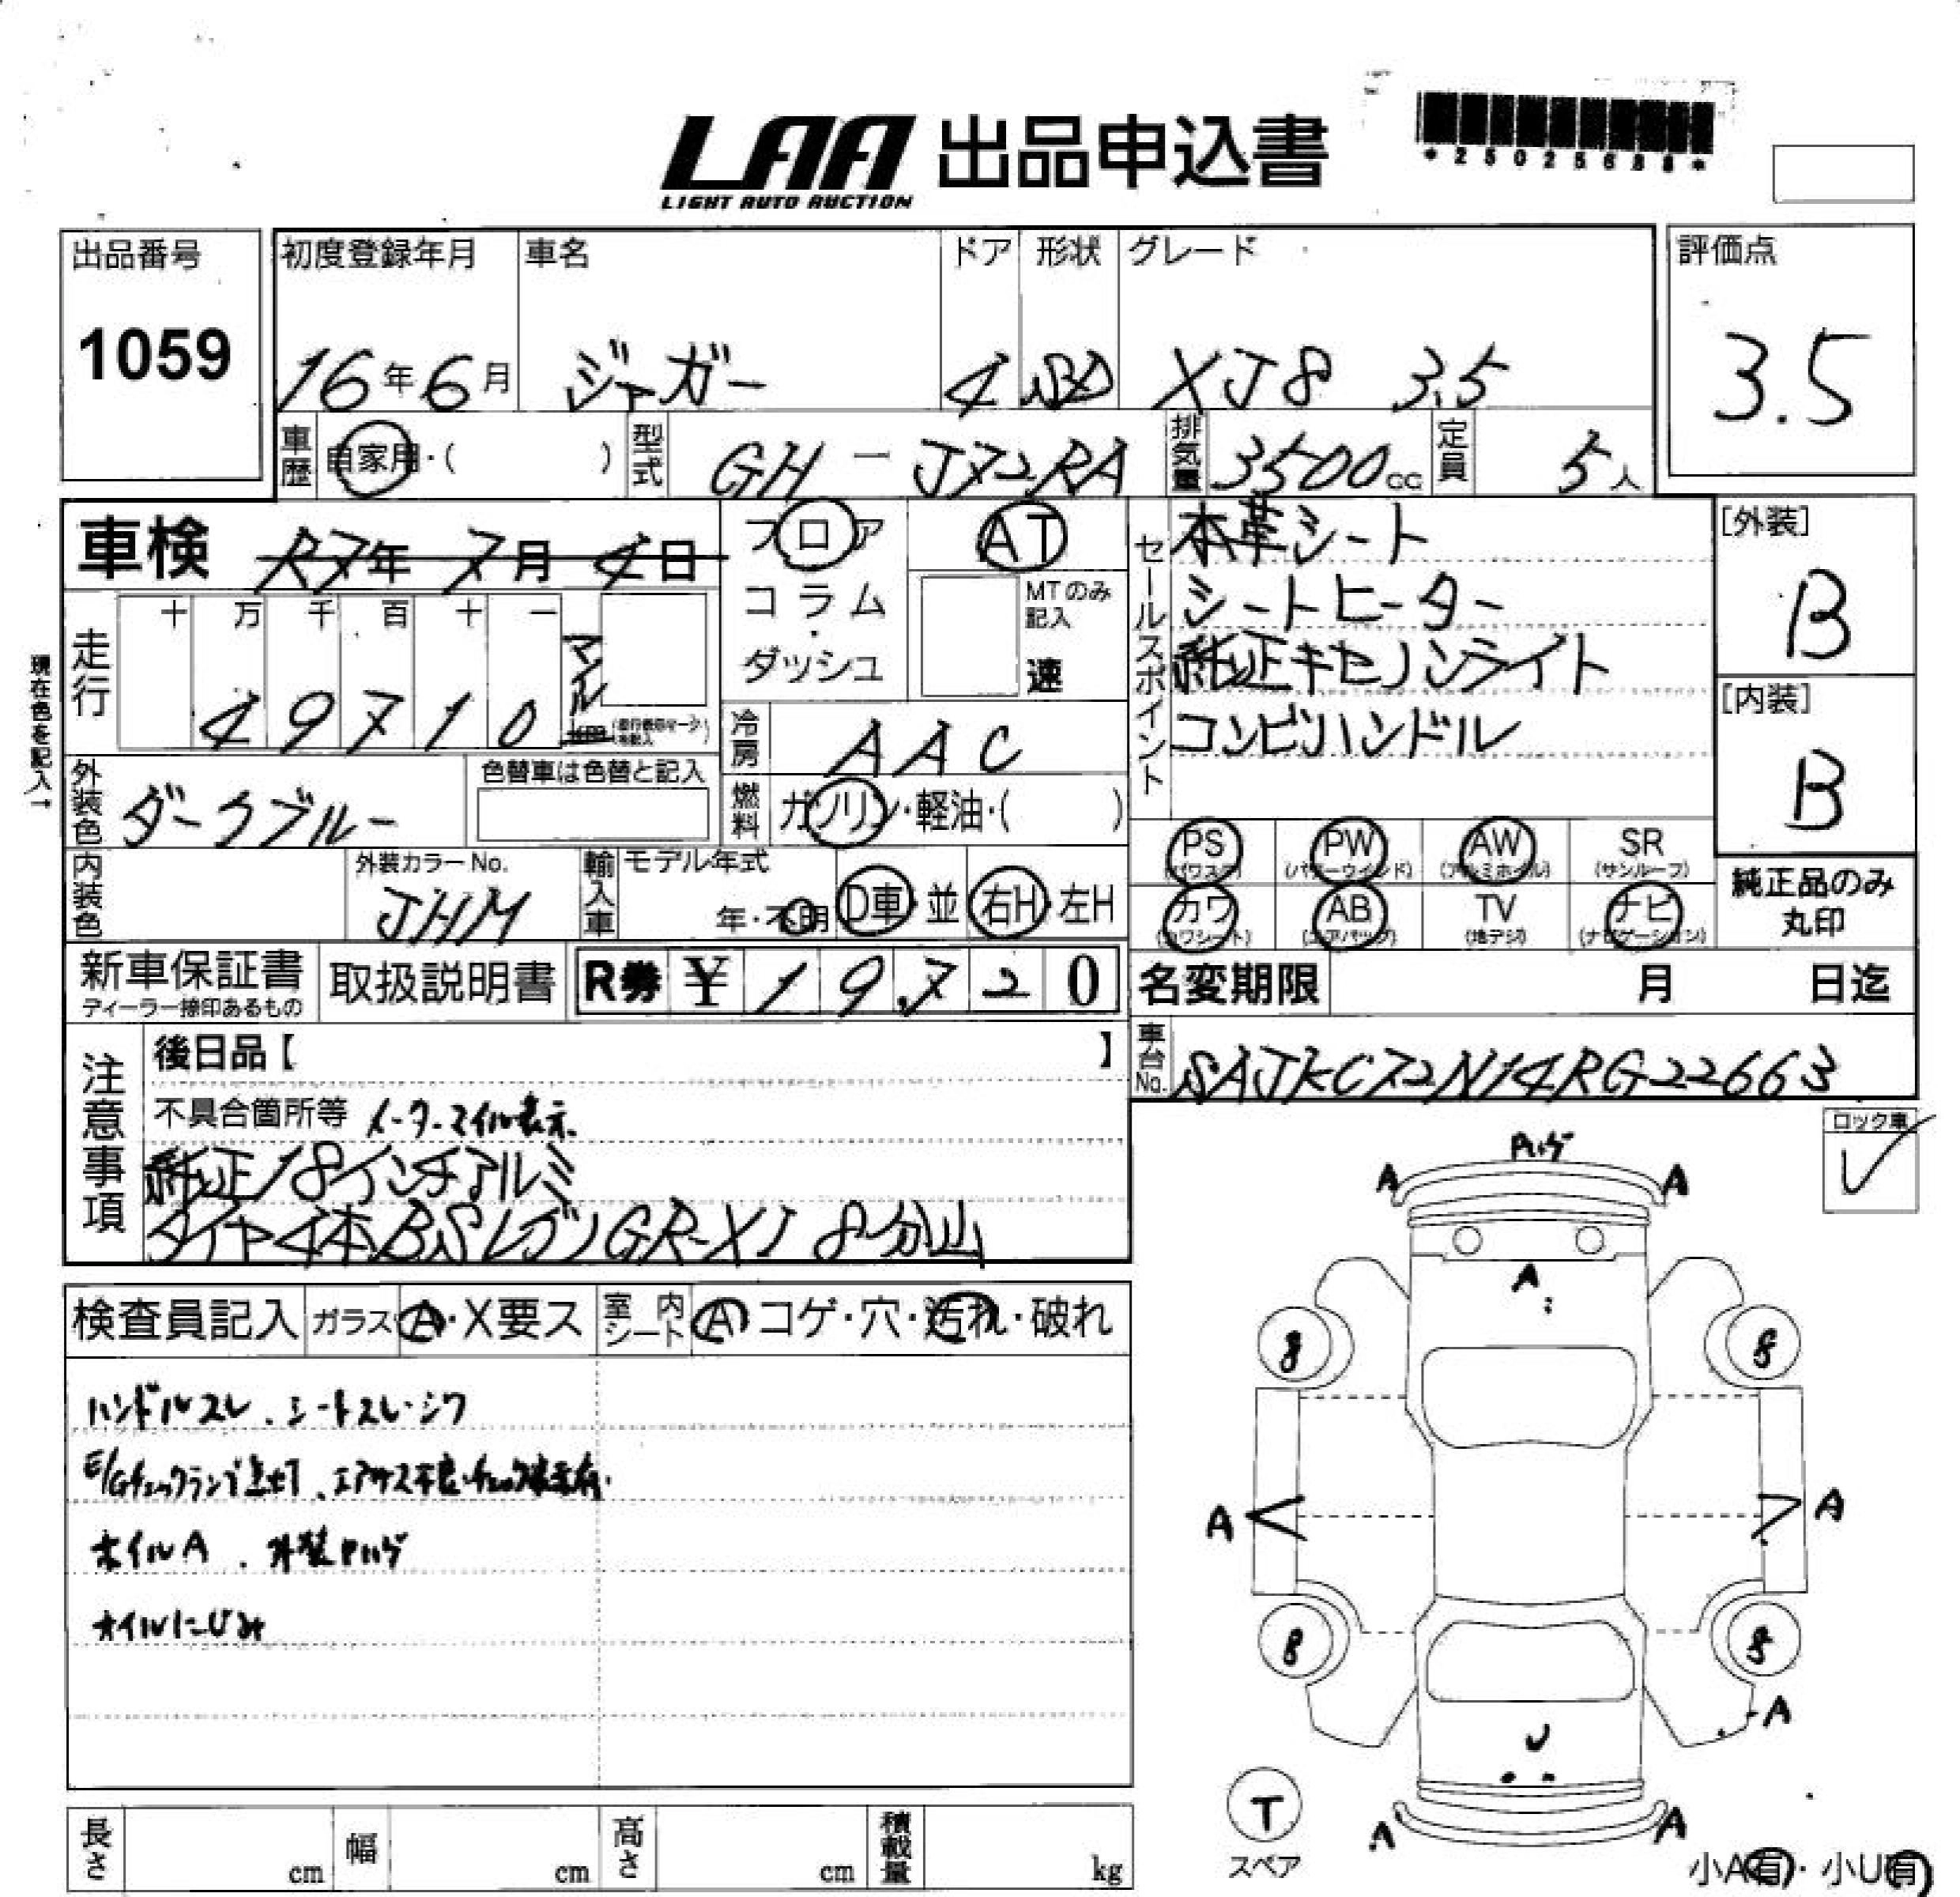 LAA 出品申込書
LIGHT AUTO AUCTION
出品番号
1059
初度登録年月
16年6月
車名
ジャガー
ドア
4
形状
SD
グレード
XJ8 3.5
評価点
3.5
車歴
自家用・( )
型式
GH-J72RA
排気量
3500cc
定員
5人
車検 R7年 7月 4日
フロア
コラム
・
ダッシュ
AT
MTのみ記入
速
セールスポイント
本革シート
シートヒーター
純正キセノンライト
コンビハンドル
[外装]
B
[内装]
B
現在色を記入→
走行
十 万 千 百 十 一
4 9 7 1 0
マイル
km
冷房
AAC
燃料
ガソリン・軽油・( )
外装色
ダークブルー
色替車は色替と記入
内装色
外装カラーNo.
JHM
輸入車
モデル年式
年・不明
D車・並
右H・左H
PS
(パワステ)
PW
(パワーウインド)
AW
(アルミホイル)
SR
(サンルーフ)
カワ
(カワシート)
AB
(エアバック)
TV
(地デジ)
ナビ
(ナビゲーション)
純正品のみ
丸印
新車保証書
ディーラー捺印あるもの
取扱説明書
R券 ¥ 19,720
名変期限 月 日迄
車台No.
SAJKC72N14RG22663
注意事項
後日品【 】
不具合箇所等 メーターマイル表示
純正18インチアルミ
タイヤ4本BSレグノGR-XI 8分山
ロック車
検査員記入
ガラス A・X要ス
室内シート
A コゲ・穴・汚れ・破れ
ハンドルスレ、シートスレ・シワ
E/Gチェックランプ点灯、エアサス不良・チェック表示有
ホイルA、外装ハゲ
オイルにじみ
A
A
A
8
8
A
A
8
A
U
T
スペア
A
A
小A有・小U有
長さ
cm
幅
cm
高さ
cm
積載量
kg